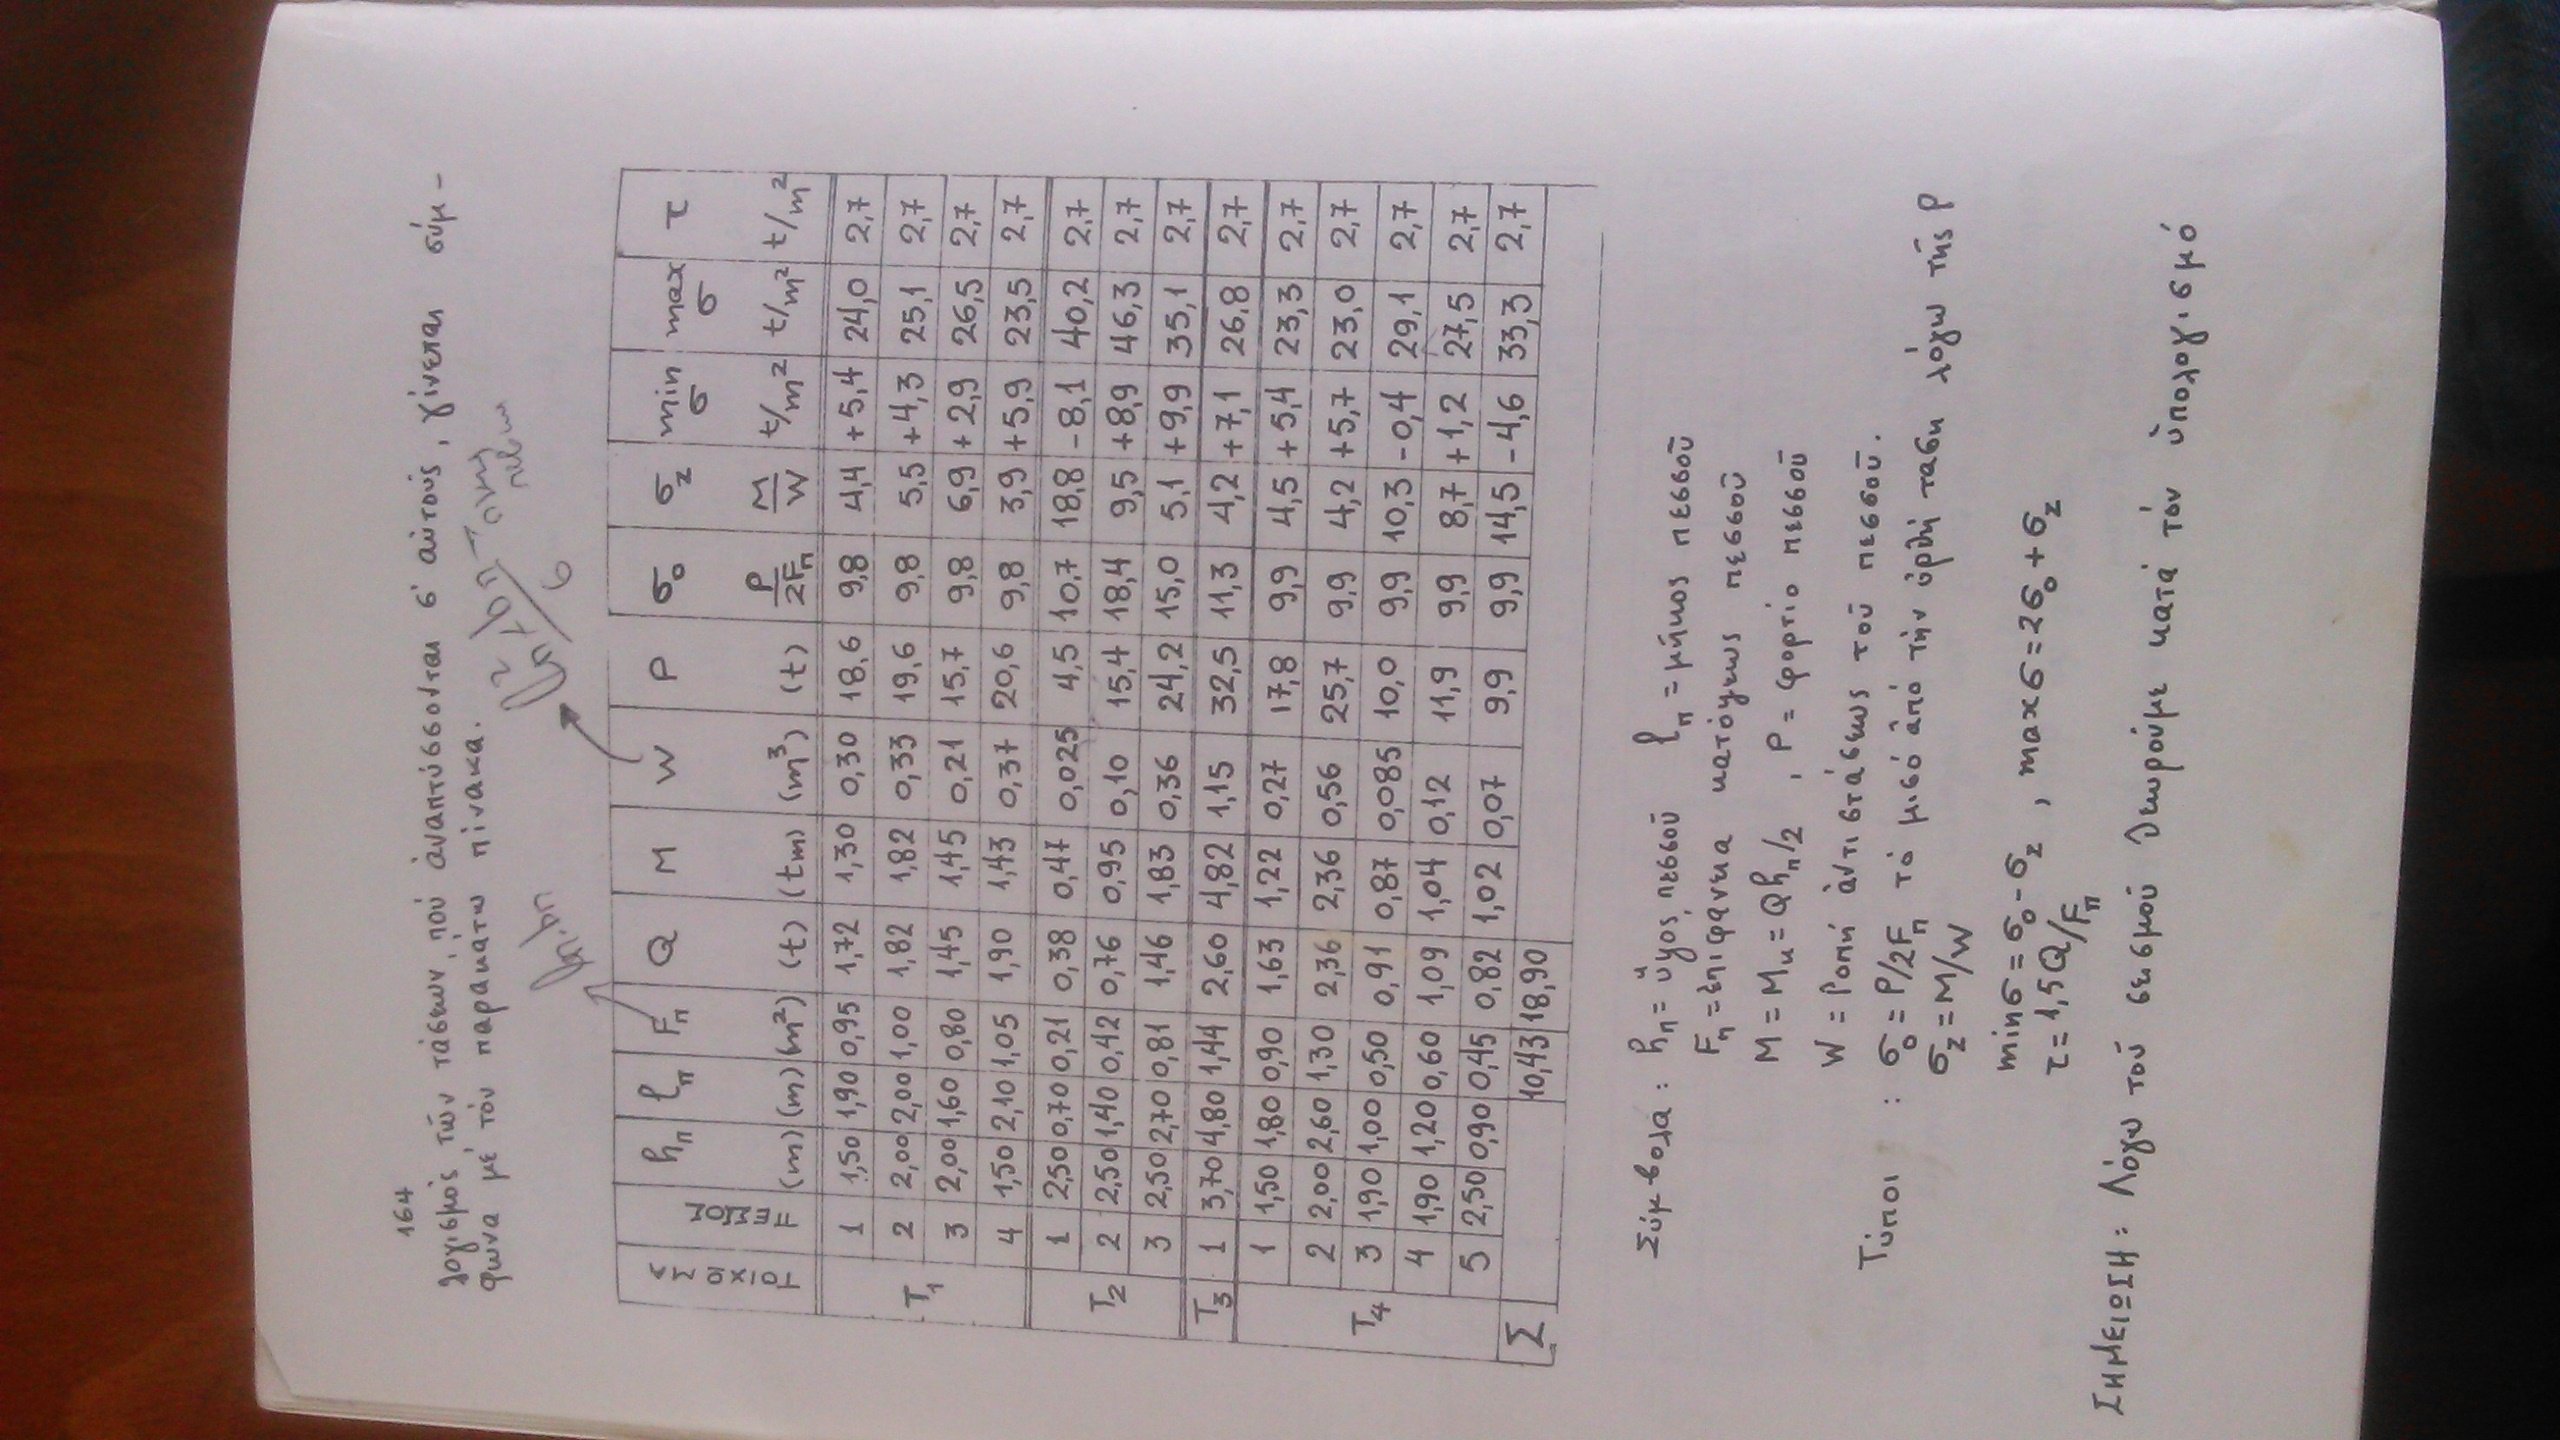 164
λογισμός τῶν τάσεων, πού ἀναπτύσσονται σ' αὐτούς, γίνεται σύμ-
φωνα μέ τόν παρακάτω πίνακα.
lπ.bπ
lπ² × bπ / 6
ΤΟΙΧΟΙ ΠΕΣΣΟΙ hπ lπ Fπ Q M W P σ₀ σz min σ max σ τ
(m) (m) (m²) (t) (tm) (m³) (t) P/2Fπ M/W t/m² t/m² t/m²
T₁ 1 1,50 1,90 0,95 1,72 1,30 0,30 18,6 9,8 4,4 +5,4 24,0 2,7
2 2,00 2,00 1,00 1,82 1,82 0,33 19,6 9,8 5,5 +4,3 25,1 2,7
3 2,00 1,60 0,80 1,45 1,45 0,21 15,7 9,8 6,9 +2,9 26,5 2,7
4 1,50 2,10 1,05 1,90 1,43 0,37 20,6 9,8 3,9 +5,9 23,5 2,7
T₂ 1 2,50 0,70 0,21 0,38 0,47 0,025 4,5 10,7 18,8 -8,1 40,2 2,7
2 2,50 1,40 0,42 0,76 0,95 0,10 15,4 18,4 9,5 +8,9 46,3 2,7
3 2,50 2,70 0,81 1,46 1,83 0,36 24,2 15,0 5,1 +9,9 35,1 2,7
T₃ 1 3,70 4,80 1,44 2,60 4,82 1,15 32,5 11,3 4,2 +7,1 26,8 2,7
T₄ 1 1,50 1,80 0,90 1,63 1,22 0,27 17,8 9,9 4,5 +5,4 23,3 2,7
2 2,00 2,60 1,30 2,36 2,36 0,56 25,7 9,9 4,2 +5,7 23,0 2,7
3 1,90 1,00 0,50 0,91 0,87 0,085 10,0 9,9 10,3 -0,4 29,1 2,7
4 1,90 1,20 0,60 1,09 1,04 0,12 11,9 9,9 8,7 +1,2 27,5 2,7
5 2,50 0,90 0,45 0,82 1,02 0,07 9,9 9,9 14,5 -4,6 33,3 2,7
Σ 10,43 18,90
Σύμβολα : hπ = ὕψος πεσσοῦ lπ = μῆκος πεσσοῦ
Fπ = ἐπιφάνεια κατόψεως πεσσοῦ
M = Mκ = Qhπ/2 , P = φορτίο πεσσοῦ
W = Ροπή ἀντιστάσεως τοῦ πεσσοῦ.
Τύποι : σ₀ = P/2Fπ τό μισό ἀπό τήν ὀρθή τάση λόγω τῆς P
σz = M/W
minσ = σ₀ - σz , maxσ = 2σ₀ + σz
τ = 1,5Q/Fπ
ΣΗΜΕΙΩΣΗ: Λόγω τοῦ σεισμοῦ θεωροῦμε κατά τόν ὑπολογισμό